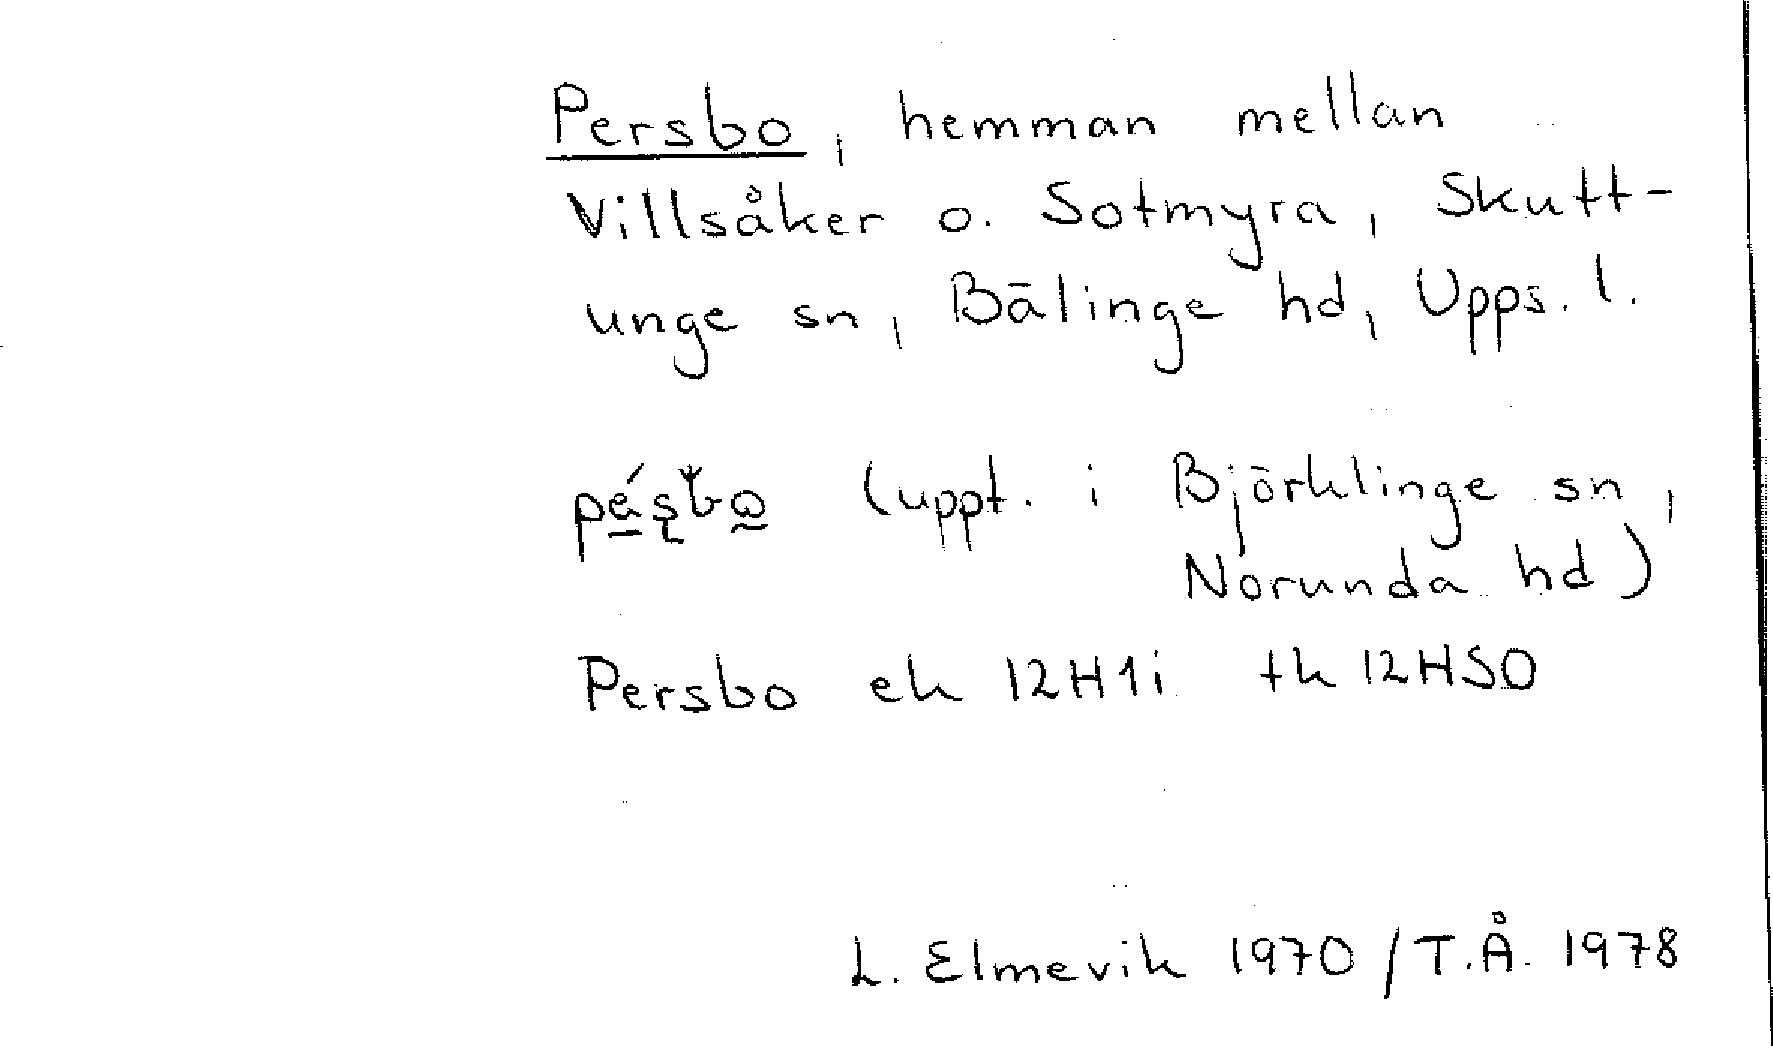 Persbo, hemman mellan
Villsåker o. Sotmyra, Skutt-
unge sn, Bälinge hd, Upps. l.
(uppt. i Björklinge sn,
Norunda hd)
Persbo ek 12H1i tk 12HSO
L. Elmevik 1970 / T.Å. 1978